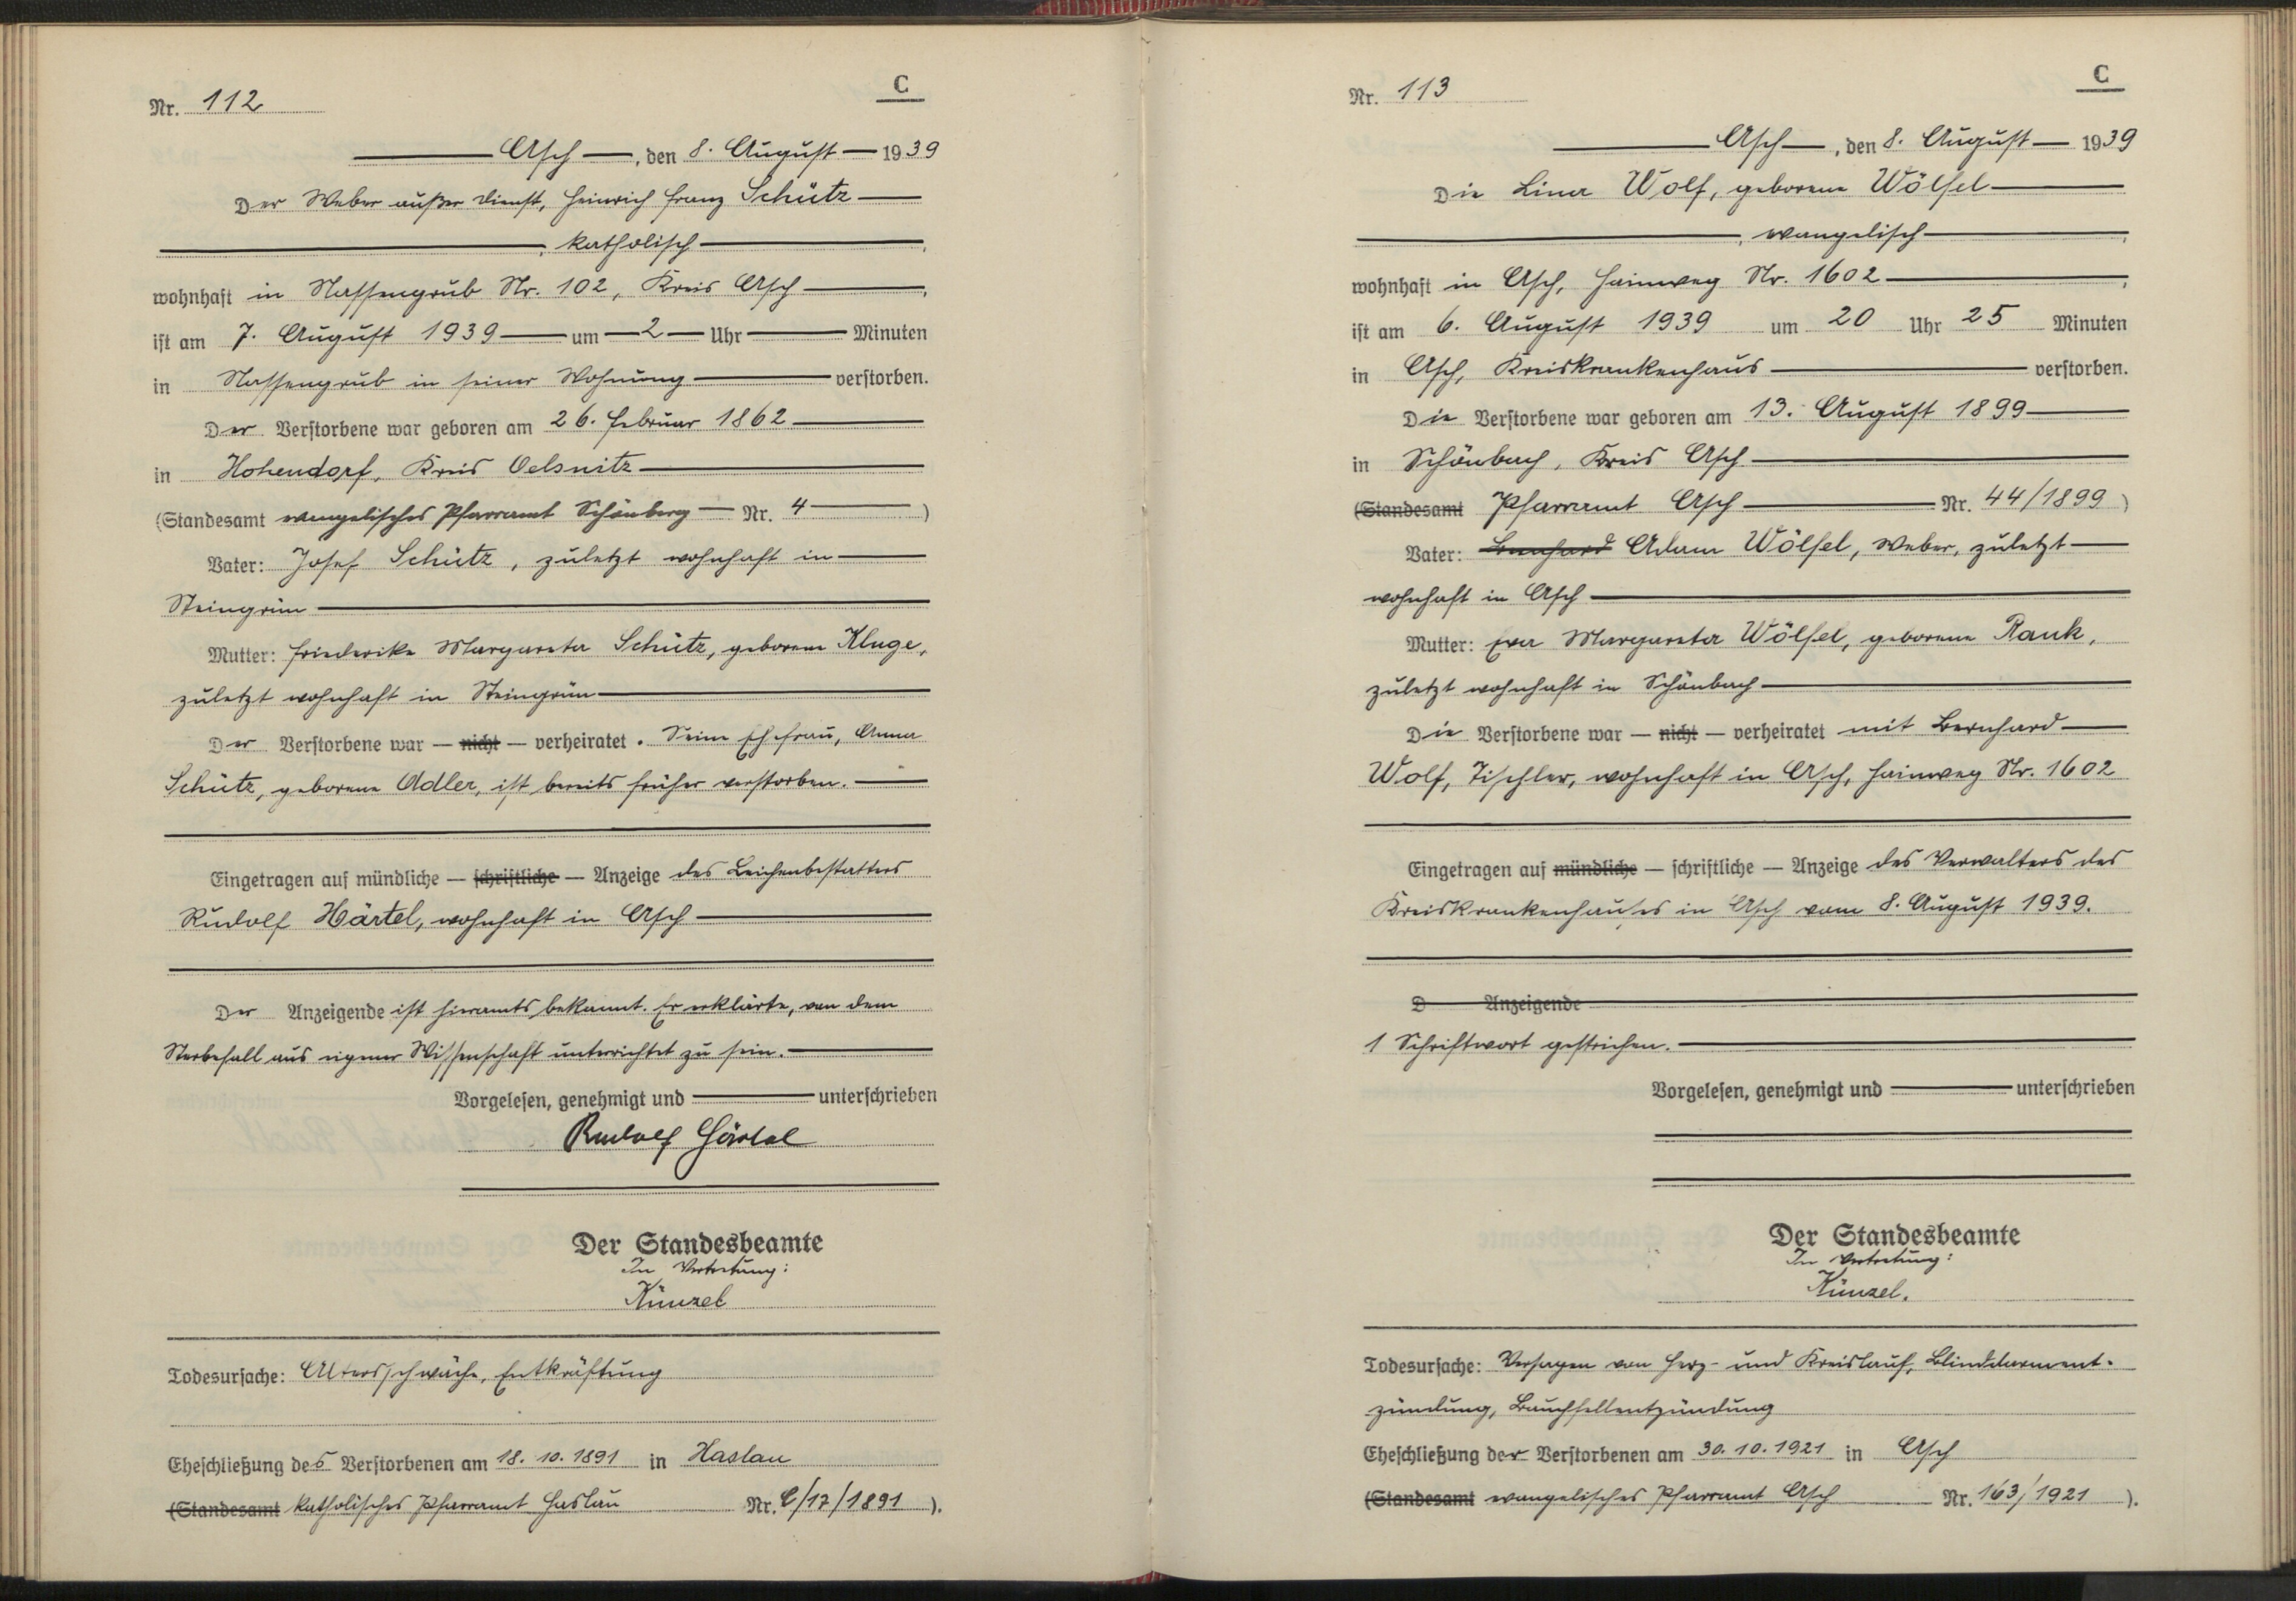 C
Nr. 112
Asch, den 8. August 1939
Der Weber außer Dienst, Heinrich Franz Schütz
, katholisch,
wohnhaft in Nassengrub Nr. 102, Kreis Asch,
ist am 7. August 1939 um 2 Uhr Minuten
in Nassengrub in seiner Wohnung verstorben.
Der Verstorbene war geboren am 26. Februar 1862
in Hohendorf, Kreis Oelsnitz
(Standesamt evangelisches Pfarramt Schönberg Nr. 4 )
Vater: Josef Schütz, zuletzt wohnhaft in
Steingrün
Mutter: Friederike Margareta Schütz, geborene Kluge,
zuletzt wohnhaft in Steingrün
Der Verstorbene war — nicht — verheiratet. Seine Ehefrau, Anna
Schütz, geborene Adler, ist bereits früher verstorben.
Eingetragen auf mündliche — schriftliche — Anzeige des Leichenbestatters
Rudolf Härtel, wohnhaft in Asch
Der Anzeigende ist hieramts bekannt. Er erklärte, von dem
Sterbefall aus eigener Wissenschaft unterrichtet zu sein.
Vorgelesen, genehmigt und unterschrieben
Rudolf Härtel
Der Standesbeamte
In Vertretung:
Künzel
Todesursache: Altersschwäche, Entkräftung
Eheschließung des Verstorbenen am 18. 10. 1891 in Haslau
(Standesamt katholisches Pfarramt Haslau Nr. C/17/1891 ).
C
Nr. 113
Asch, den 8. August 1939
Die Lina Wolf, geborene Wölfel
, evangelisch,
wohnhaft in Asch, Hainweg Nr. 1602,
ist am 6. August 1939 um 20 Uhr 25 Minuten
in Asch, Kreiskrankenhaus verstorben.
Die Verstorbene war geboren am 13. August 1899
in Schönbach, Kreis Asch
(Standesamt Pfarramt Asch Nr. 44/1899 )
Vater: Bernhard Adam Wölfel, Weber, zuletzt
wohnhaft in Asch
Mutter: Eva Margareta Wölfel, geborene Rank,
zuletzt wohnhaft in Schönbach
Die Verstorbene war — nicht — verheiratet mit Bernhard
Wolf, Tischler, wohnhaft in Asch, Hainweg Nr. 1602
Eingetragen auf mündliche — schriftliche — Anzeige des Verwalters des
Kreiskrankenhauses in Asch vom 8. August 1939.
D Anzeigende
1 Schriftwort gestrichen.
Vorgelesen, genehmigt und unterschrieben
Der Standesbeamte
In Vertretung:
Künzel.
Todesursache: Versagen von Herz- und Kreislauf, Blinddarment-
zündung, Bauchfellentzündung
Eheschließung der Verstorbenen am 30. 10. 1921 in Asch
(Standesamt evangelisches Pfarramt Asch Nr. 163/1921 ).